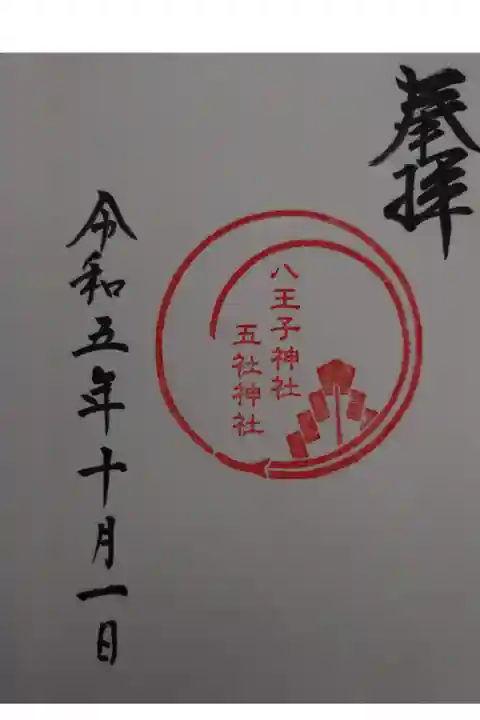 奉拝
八王子神社
五社神社
令和五年十月一日